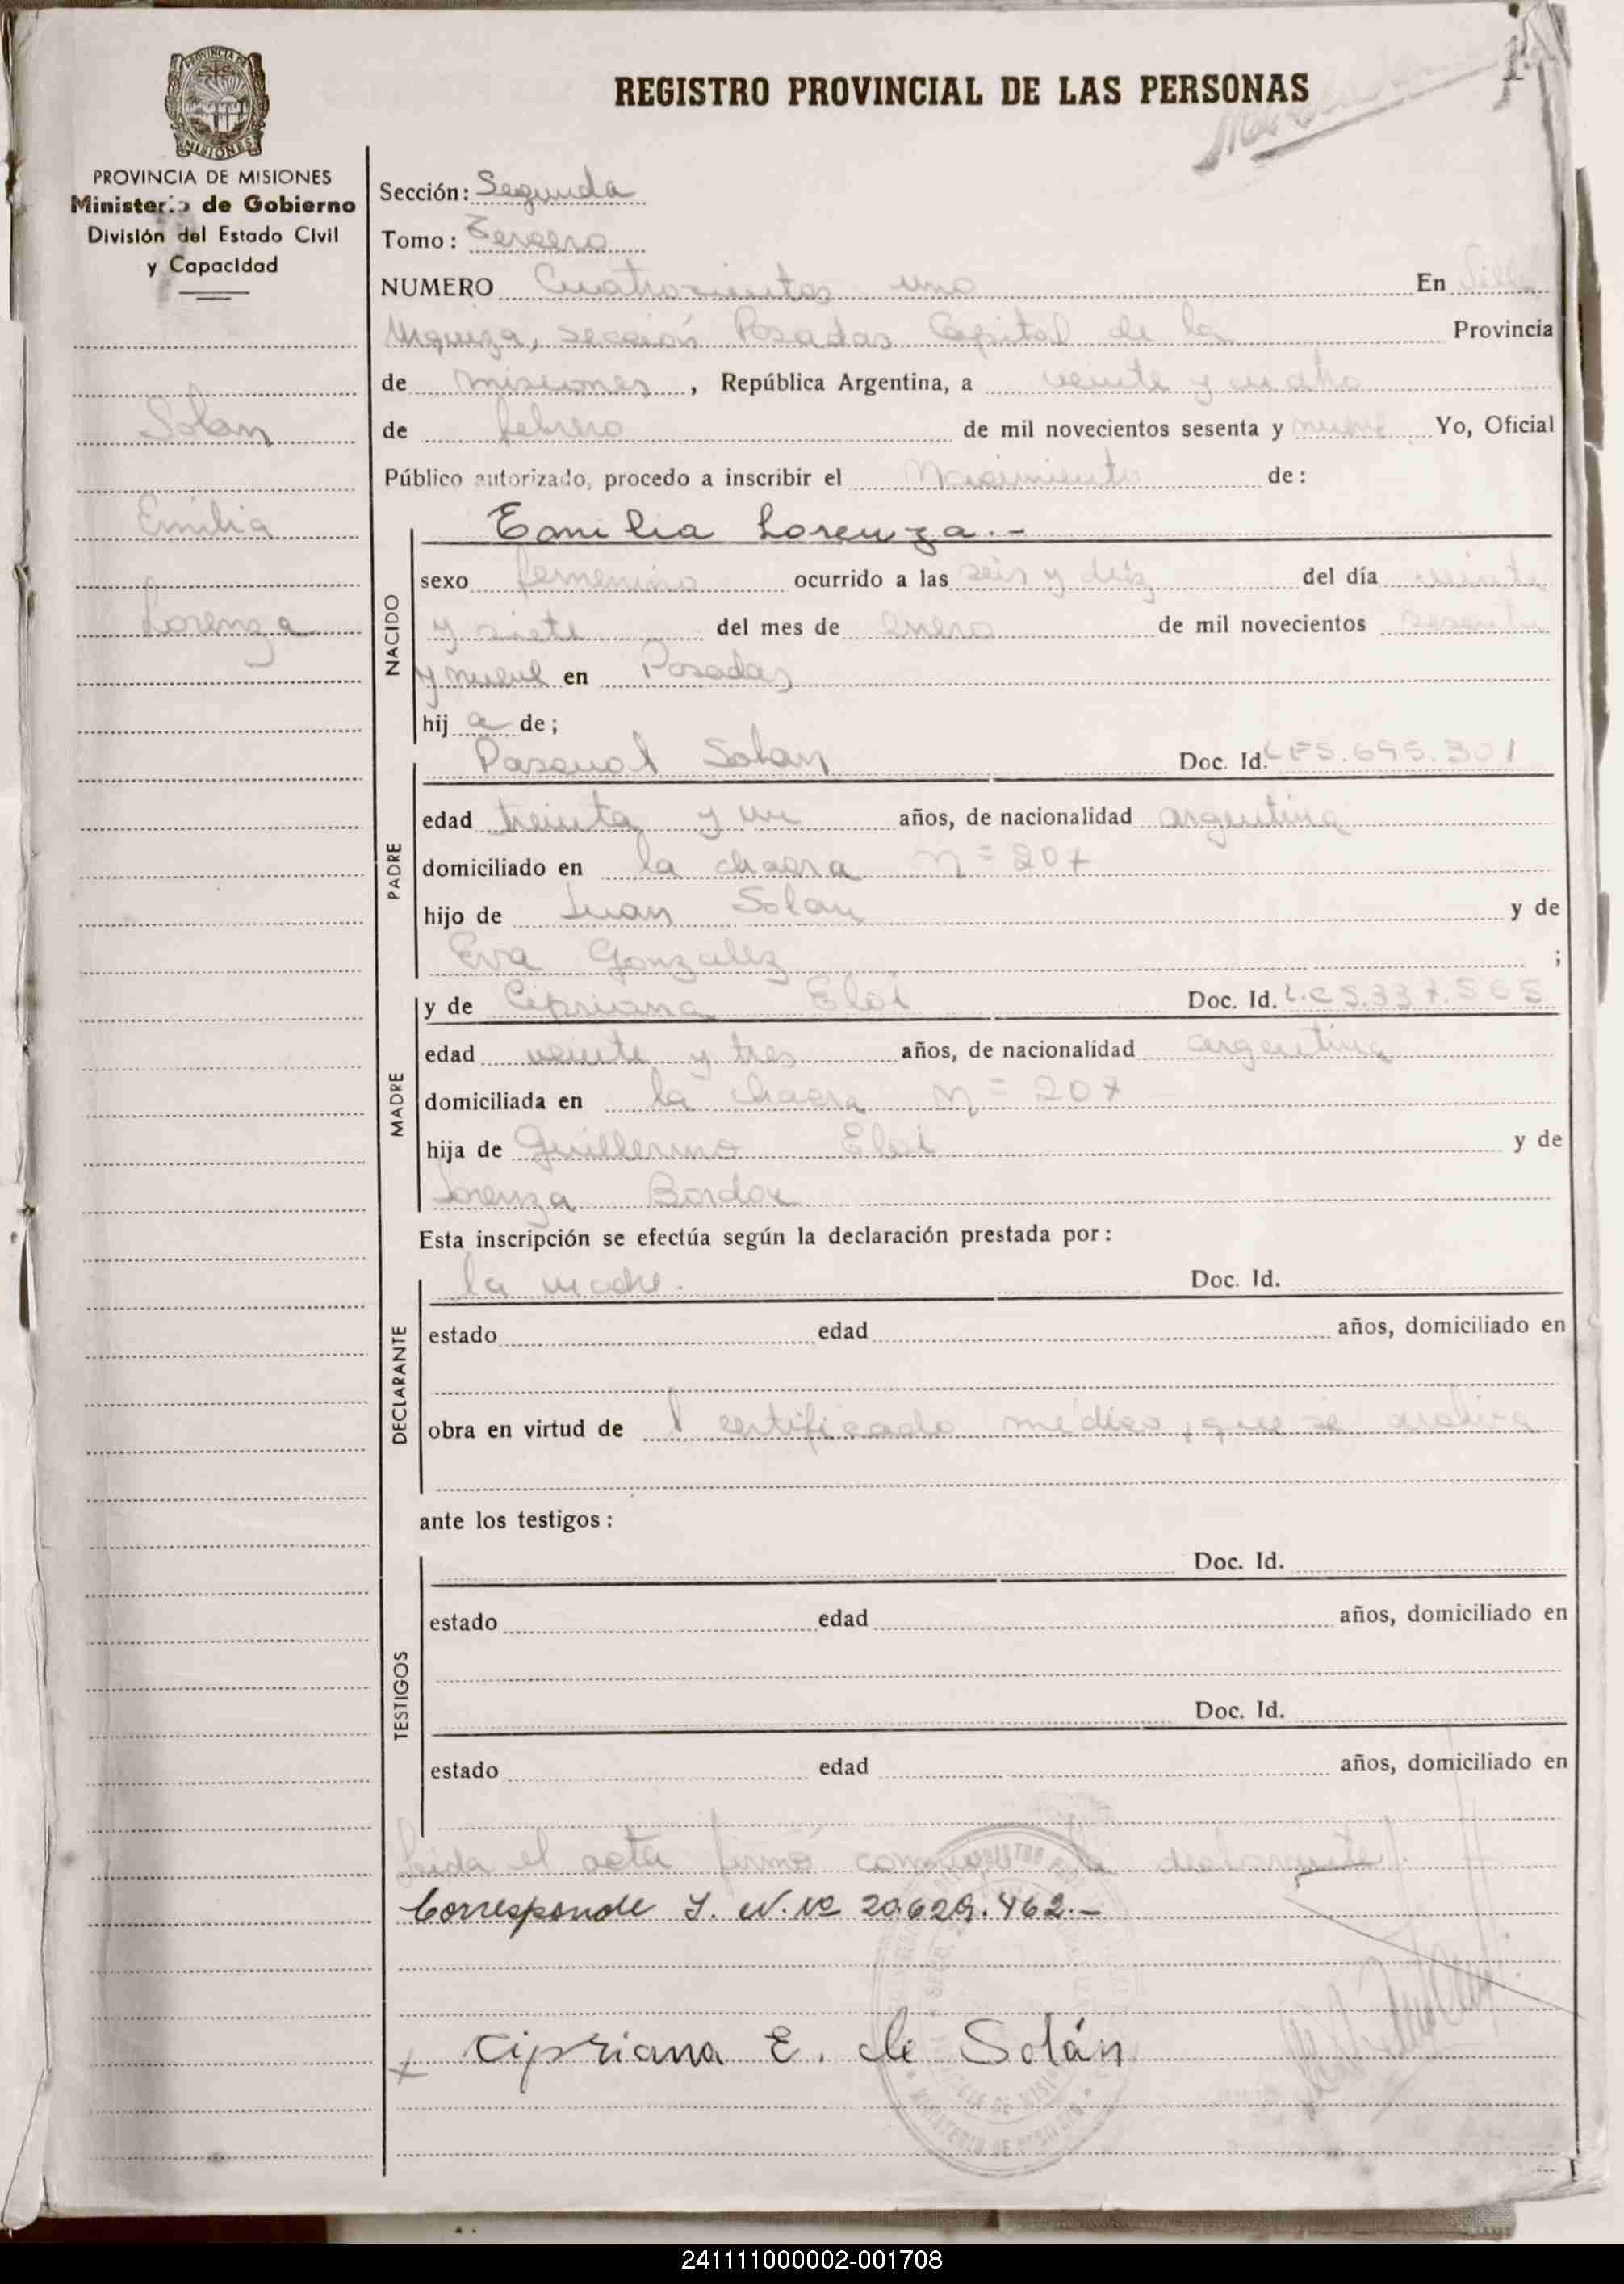 REGISTRO PROVINCIAL DE LAS PERSONAS
PROVINCIA DE
MISIONES
PROVINCIA DE MISIONES
Ministerio de Gobierno
División del Estado Civil
y Capacidad
Solan
Emilia
Lorenza
Sección: Segunda
Tomo: Tercero
NUMERO Cuatrocientos uno En Villa
Urquiza, sección Posadas Capital de la Provincia
de misiones, República Argentina, a veinte y cuatro
de febrero de mil novecientos sesenta y nueve Yo, Oficial
Público autorizado, procedo a inscribir el Nacimiento de:
NACIDO
Emilia Lorenza.-
sexo femenino ocurrido a las seis y diez del día veinte
y siete del mes de enero de mil novecientos sesenta
y nueve en Posadas
hij a de;
PADRE
Pascual Solan Doc. Id. L E 5.695.301
edad treinta y un años, de nacionalidad argentina
domiciliado en la chacra n= 207
hijo de Juan Solan y de
Eva Gonzalez ;
MADRE
y de Cipriana Eloi Doc. Id. L.C 5.337.565
edad veinte y tres años, de nacionalidad argentina
domiciliada en la chacra n= 207
hija de Guillermo Eloi y de
Lorenza Bordox
Esta inscripción se efectúa según la declaración prestada por:
DECLARANTE
la madre. Doc. Id.
estado edad años, domiciliado en
obra en virtud de l certificado médico, que se archiva
ante los testigos:
TESTIGOS
Doc. Id.
estado edad años, domiciliado en
Doc. Id.
estado edad años, domiciliado en
Leida el acta firmó conmigo la declarante
Corresponde I. N. Nº 20.629.462.-
x Cipriana E. de Solán
241111000002-001708